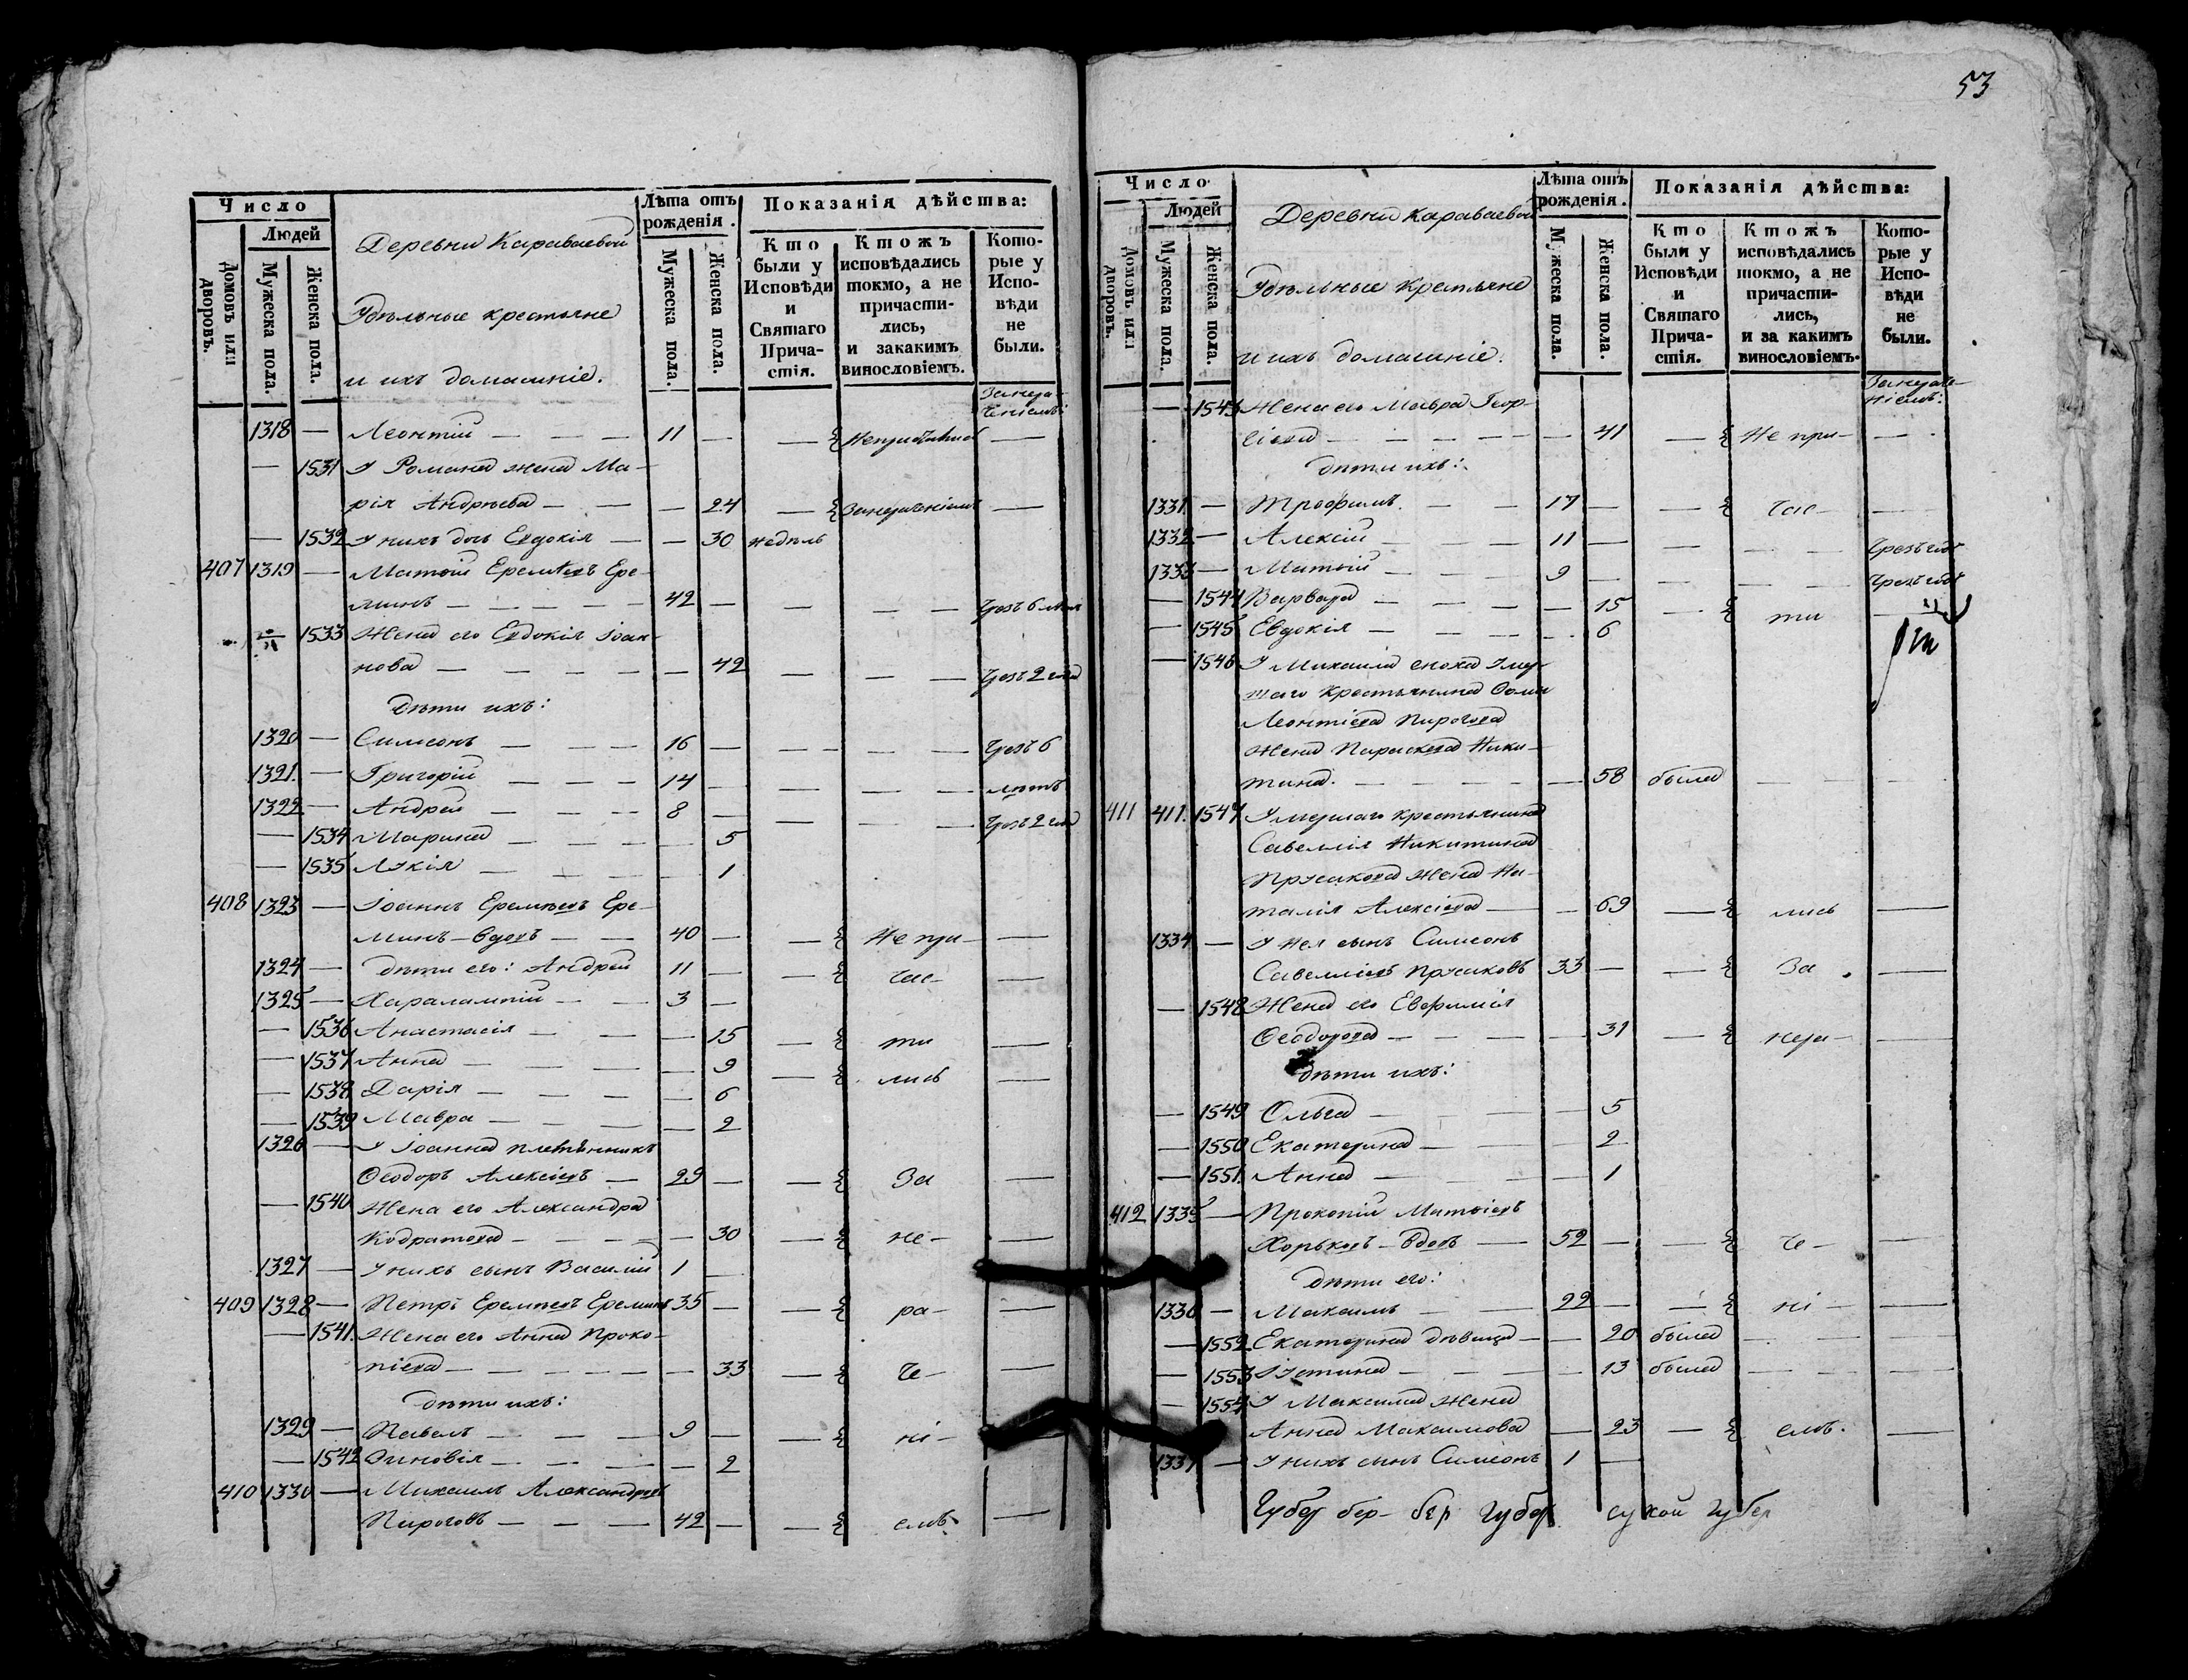 53
Число
Людей
Домовъ или дворовъ.
Мужеска пола.
Женска пола.
Деревни Караваевой
Удѣльные крестьяне
и ихъ домашніе.
Лѣта отъ рожденія.
Мужеска пола.
Женска пола.
Показанія дѣйства:
Кто были у Исповѣди и Святаго Прича-стія.
Ктожъ исповѣдались токмо, а не причасти-лись, и закакимъ винословіемъ.
Кото-рые у Испо-вѣди не были.
1318 — Леонтій — — — 11 — —
— 1531 У Романа жена Ма-
рія Андрѣева — — — 24 —
— 1532 У нихъ дочь Евдокія — — 30 недѣль
407 1319 — Матѳій Еремѣевъ Ере-
минъ — — — — — 42 — — — —
1533 Жена его Евдокія Іоан-
нова — — — — — — 42 — — — Чрезъ 2 года
Дѣти ихъ:
1320 — Симеонъ — — — 16 — — — — — Чрезъ 6
1321. — Григорій — — — 14 — — — — лѣтъ
1322 — Андрей — — — 8 — — — — Чрезъ 2 года
— 1534 Марина — — — — — 5
— 1535 Лукія — — — — 1
408 1323 — Іоаннъ Еремѣевъ Ере-
минъ — вдовъ — — 40 — — Не при- —
1324 — дѣти его: Андрей 11 — — час-
1325 — Харалампій — — 3 —
— 1536 Анастасія — — — 15 — ти —
— 1537 Анна — — — — — 9 — лись —
— 1538 Дарія — — — — — 6
— 1539 Мавра — — — — — 2
1326 — У Іоанна племянникъ
Ѳеодоръ Алексіевъ — 29 — — За —
— 1540 Жена его Александра
Кодратова — — — — — 30 — не- —
1327 — У нихъ сынъ Василій 1 —
409 1328 — Петръ Еремѣевъ Ереминъ 35 — — ра- —
— 1541. Жена его Анна Проко-
піева — — — — — — 33 — че- —
Дѣти ихъ:
1329 — Павелъ — — — — 9 — — ні- —
— 1542 Зиновія — — — — — 2
410 1330 — Михаилъ Александровъ
Пироговъ — — — 42 — — емъ —
Число
Людей
Домовъ или дворовъ.
Мужеска пола.
Женска пола.
Деревни Караваевой
Удѣльные крестьяне
и ихъ домашніе.
Лѣта отъ рожденія.
Мужеска пола.
Женска пола.
Показанія дѣйства:
Кто были у Исповѣди и Святаго Прича-стія.
Ктожъ исповѣдались токмо, а не причасти-лись, и за какимъ винословіемъ.
Кото-рые у Испо-вѣди не были.
— 1543 Жена его Мавра Геор-
гіева — — — — — — 41 — Не при- — —
дѣти ихъ:
1331. — Трофимъ. — — 17 — — час- —
1332 — Алексій — — — 11 — — — — Чрезъ
1333 — Матѳій — — — 9 — — — —
— 1544 Варвара — — — — — 15 — ти —
— 1545 Евдокія — — — — — 6
— 1546 У Михаила сноха Умер-
шаго крестьянина Ѳомы
Леонтіева Пирогова
жена Параскева Ники-
тина. — — — — — 58 была — — —
411 411. 1547 Умершаго крестьянина
Савелія Никитина
Прусакова жена На-
талія Алексіева — — 69 — лись —
1334 — У нея сынъ Симеонъ
Савеліевъ Прусаковъ 33 — — За —
— 1548 Жена его Евфимія
Ѳеодорова — — — — 31 — нера- —
дѣти ихъ:
— 1549 Ольга — — — — 5
— 1550 Екатерина — — — 2
— 1551. Анна — — — 1
412 1335 — Прокопій Матѳіевъ
Хорьковъ — вдовъ — 52 — — че- —
дѣти его:
1336 — Максимъ — — 22 — — ні — —
— 1552 Екатерина дѣвица — — 20 была — — —
— 1553 Іустина — — — — 13 была — — —
— 1554 У Максима жена
Анна Максимова — 23 — емъ. —
1337 — У нихъ сынъ Симеонъ 1 —
Губер бер- бер губер сухой губер